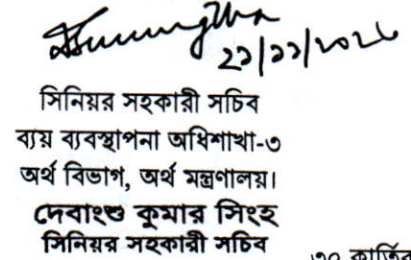 ২১/১১/২০২
সিনিয়র সহকারী সচিব
ব্যয় ব্যবস্থাপনা অধিশাখা-৩
অর্থ বিভাগ, অর্থ মন্ত্রণালয়।
দেবাংশু কুমার সিংহ
সিনিয়র সহকারী সচিব
৩০ কার্তিক